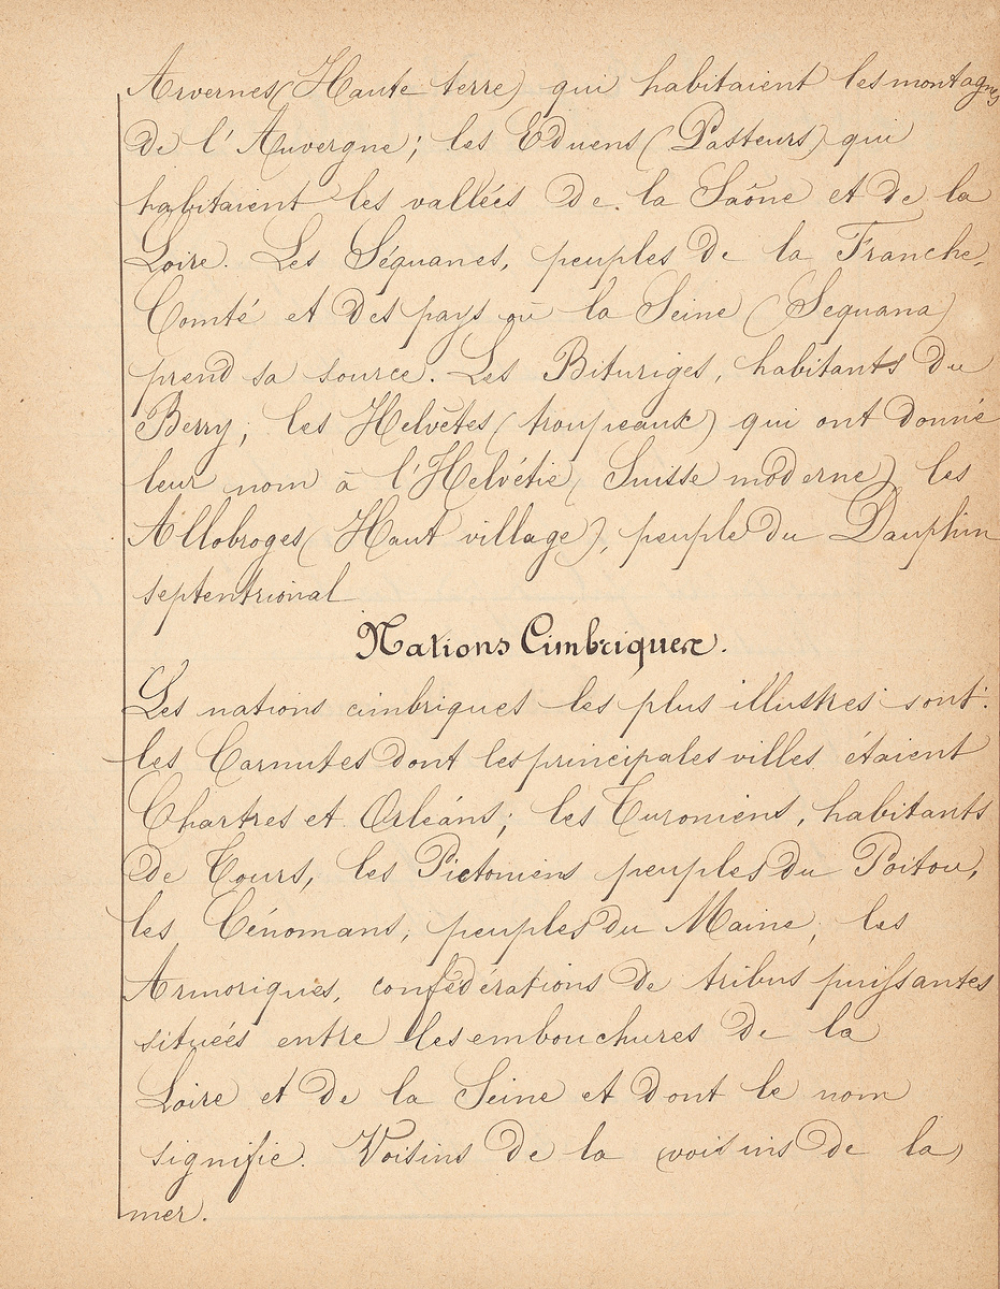 Arvernes (Haute terre) qui habitaient les montagnes
de l'Auvergne; les Eduens (Pasteurs) qui
habitaient les vallées de la Saône et de la
Loire. Les Séquanes, peuples de la Franche-
Comté et des pays où la Seine (Sequana)
prend sa source. Les Bituriges, habitants du
Berry; les Helvètes (troupeaux) qui ont donné
leur nom à l'Helvétie (Suisse moderne) les
Allobroges (Haut village), peuple du Dauphin
septentrional
Nations Cimbriques.
Les nations cimbriques les plus illustres sont:
les Carnutes dont les principales villes étaient
Chartres et Orléans; les Turoniens, habitants
de Tours, les Pictoniens peuples du Poitou,
les Cénomans, peuples du Maine, les
Armoriques, confédérations de tribus puissantes
situées entre les embouchures de la
Loire et de la Seine et dont le nom
signifie. Voisins de la (voisins de la)
mer.